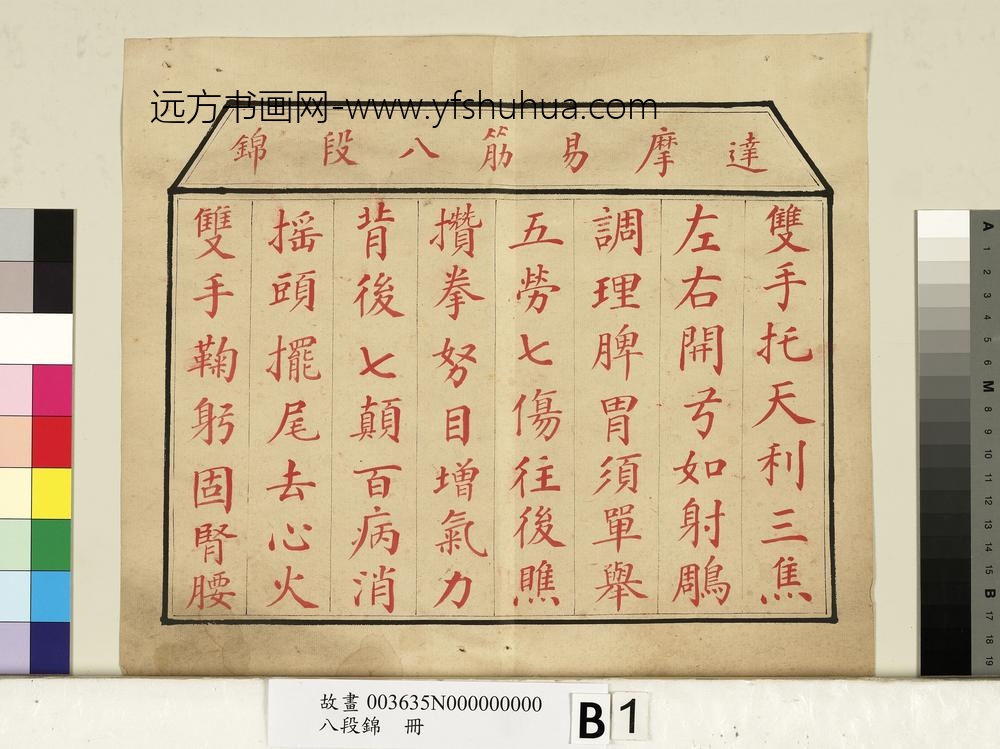 远方书画网-www.yfshuhua.com
達摩易筋八段錦
雙手托天利三焦
左右開弓如射鵰
調理脾胃須單舉
五勞七傷往後瞧
攢拳努目增氣力
背後七顛百病消
搖頭擺尾去心火
雙手鞠躬固腎腰
故畫 003635N000000000
八段錦 冊
B 1
A
1
2
3
4
5
6
M
8
9
10
11
12
13
14
15
B
17
18
19